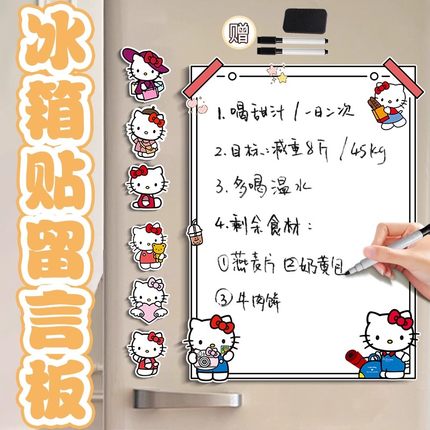 冰箱贴留言板
赠
1.喝甜汁/一日二次
2.目标:减重8斤/45kg
3.多喝温水
4.剩余食材:
①燕麦片 ②奶黄包
③牛肉饼